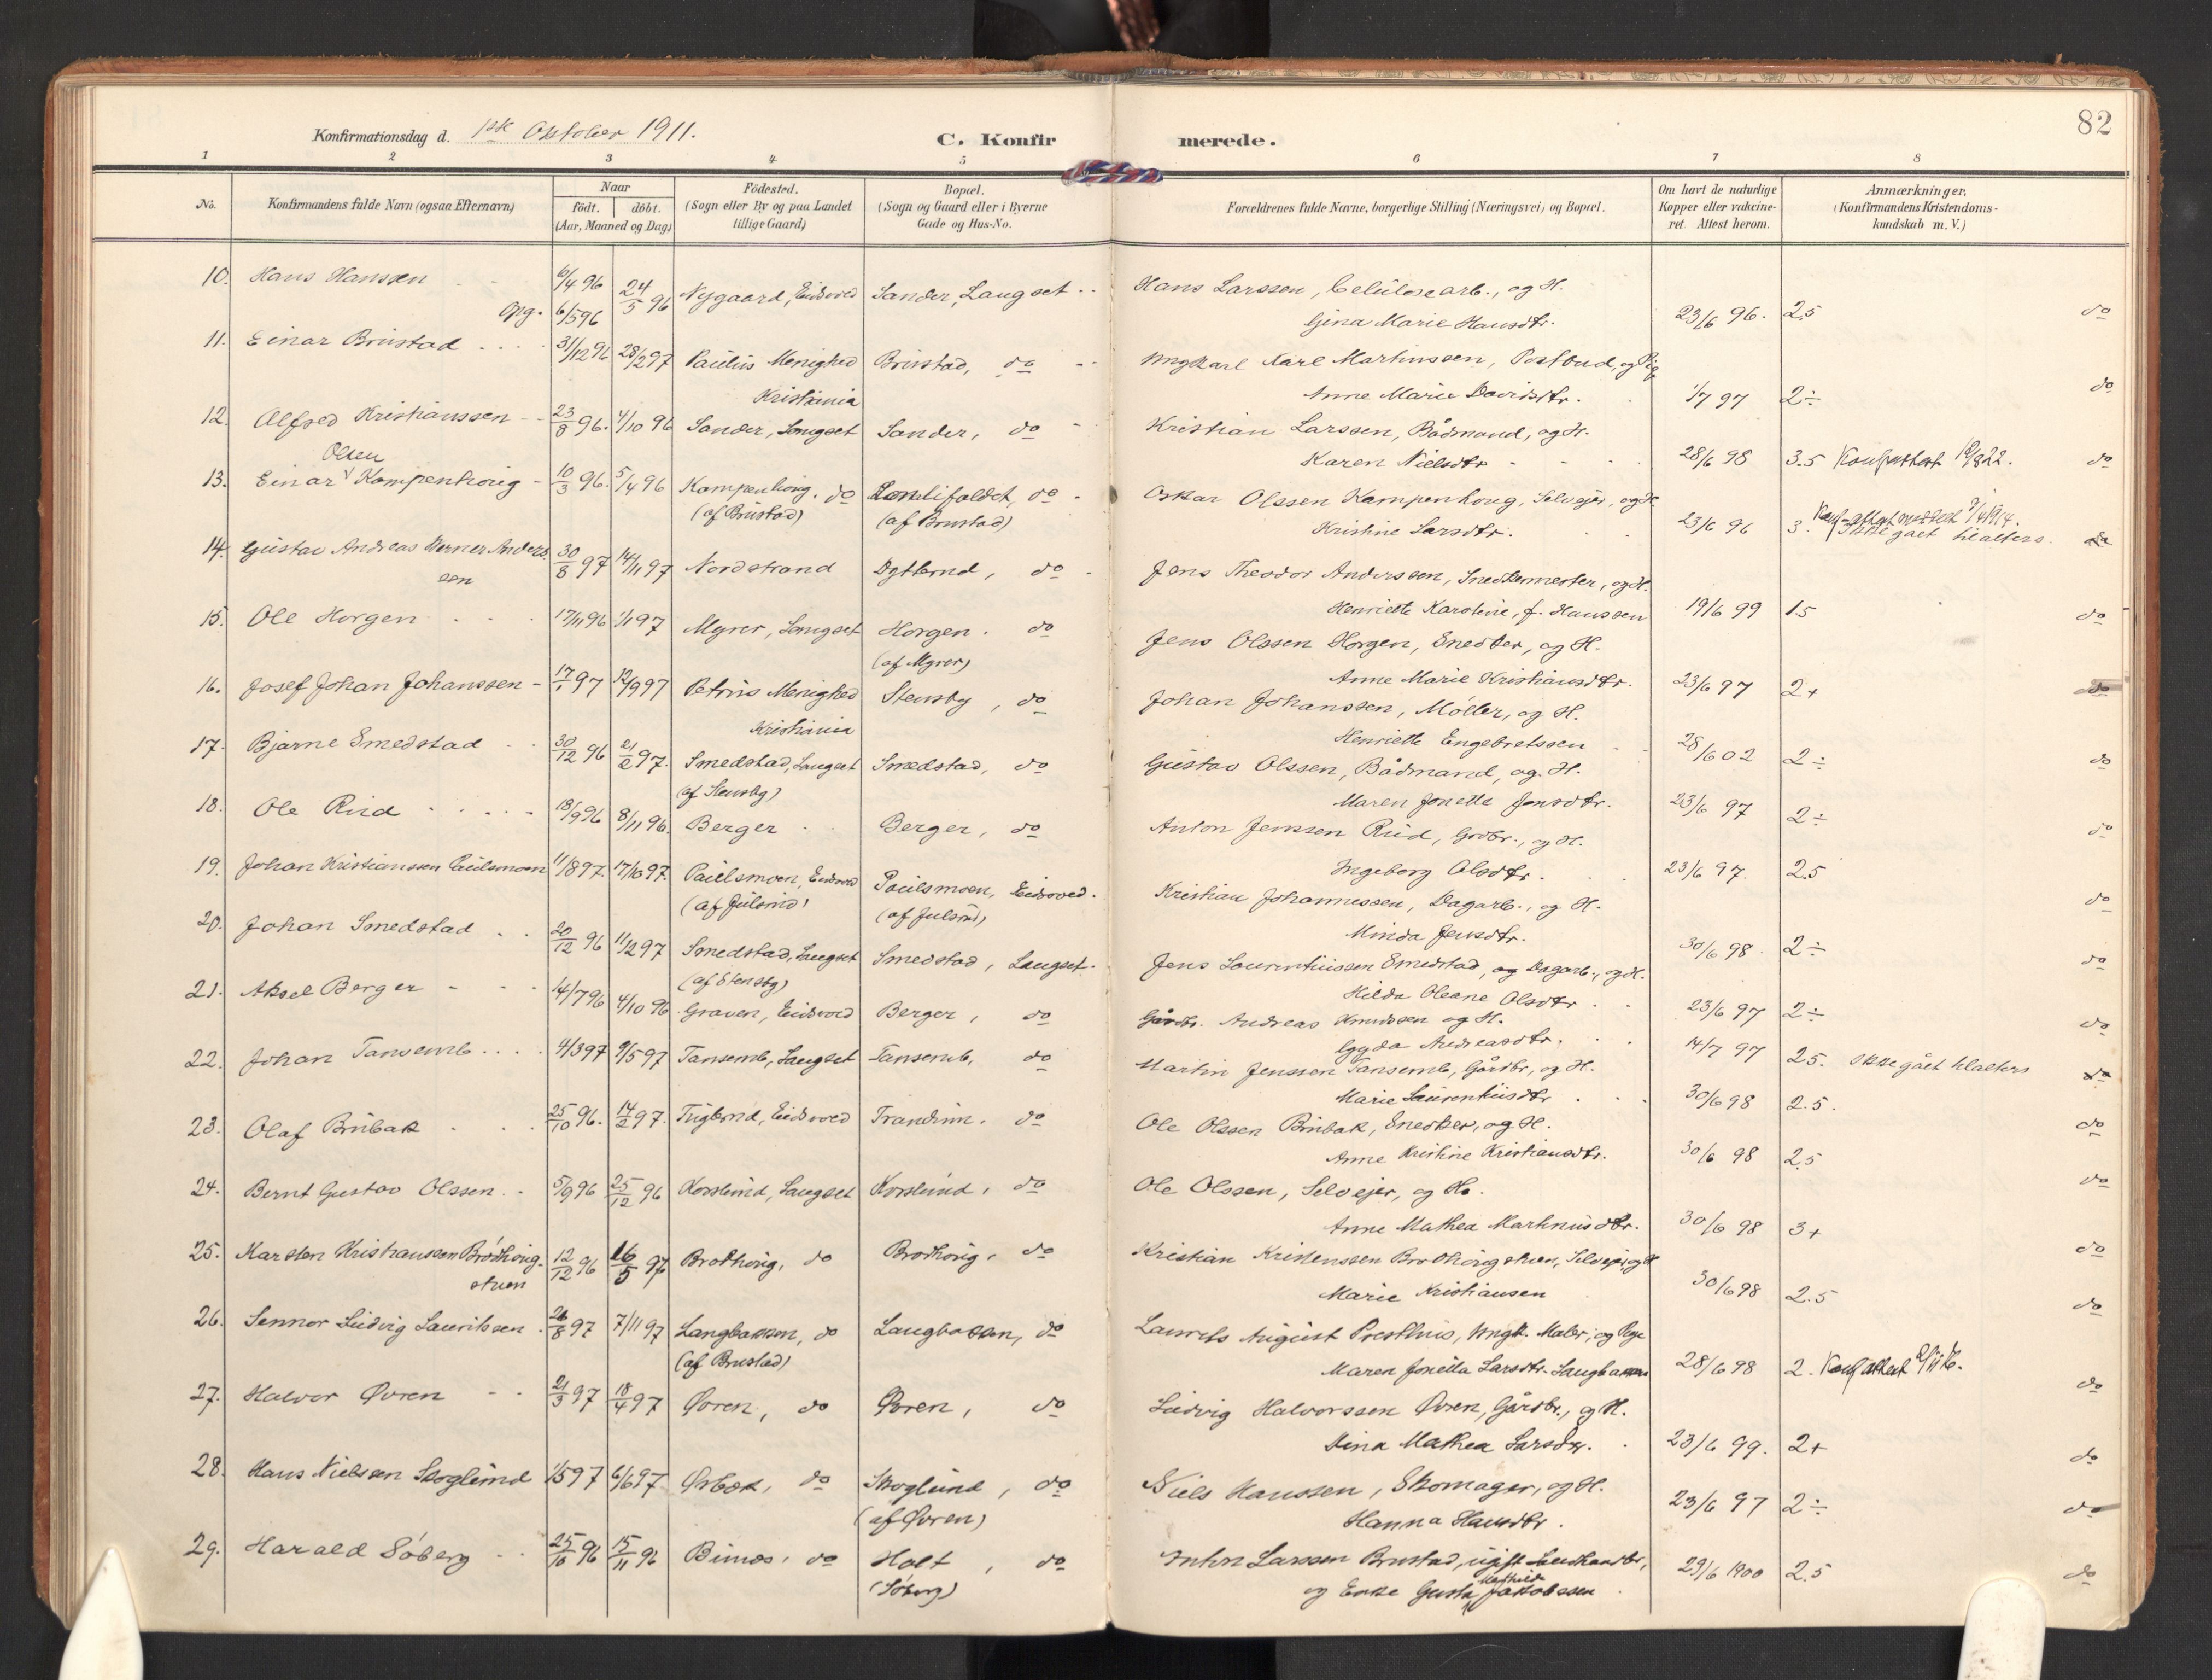 82
Konfirmationsdag d. 1ste Oktober 1911.
C. Konfirmerede.
1 2 3 4 5 6 7 8
No. Konfirmandens fulde Navn (ogsaa Efternavn) Naar født. døbt. (Aar, Maaned og Dag) Födested. (Sogn eller By og paa Landet tillige Gaard) Bopæl. (Sogn og Gaard eller i Byerne Gade og Hus-No. Forældrenes fulde Navne, borgerlige Stilling (Næringsvei) og Bopæl. Om havt de naturlige Kopper eller vakcineret. Attest herom. Anmærkninger. (Konfirmandens Kristendomskundskab m. V.)
10. Hans Hanssen 6/4 96 24/5 96 Nygaard, Eidsvold Sander, Langset Hans Larssen, Celulosearb., og H.
opg. 6/5 96 Gina Marie Hansdtr. 23/6 96. 2.5 do
11. Einar Brustad 31/12 96 28/2 97 Paulus Menighed Brustad, do Ungkarl Karl Martinssen, Postbud, og Pig
Kristiania Anne Marie Davidsdtr. 1/7 97 2÷ do
12. Alfred Kristianssen 23/8 96. 4/10 96 Sander, Langset Sander, do Kristian Larssen, Bådmand, og H.
Karen Nielsdtr 28/6 98 3.5 Konfattest do
Olsen
13. Einar Kampenhoug 10/3 96. 5/4 96 Kampenhoug, do do Oskar Olssen Kampenhoug, Selvejer, og H.
(af Brustad) (af Brustad) Kristine Larsdtr. 23/6 96 3. Ikke gået til alters. do
14. Gustav Andreas Werner Anderssen 30/8 97 14/11 97 Nordstrand Dytterud, do Jens Theodor Anderssen, Snedkermester, og H.
Henriette Karoline, f. Hanssen 19/6 99 1.5 do
15. Ole Horgen 17/11 96 1/1 97 Myrer, Langset Horgen. do Jens Olssen Horgen, Snedker, og H.
(af Myrer) Anne Marie Kristiansdtr. 23/6 97 2+ do
16. Josef Johan Johanssen 17/1 97 12/9 97 Petrus Menighed Stensby, do Johan Johanssen, Møller, og H.
Kristiania Henriette Engebretssen 28/6 02 2÷ do
17. Bjarne Smedstad 30/12 96 21/2 97. Smedstad, Langset Smedstad, do Gustav Olssen, Bådmand, og H.
(af Stensby) Maren Jonette Jensdtr. 23/6 97 2÷ do
18. Ole Rud 18/9 96 8/11 96. Berger Berger, do Anton Jenssen Rud, Grdbr., og H.
Ingeborg Olsdtr. 23/6 97 2.5 do
19. Johan Kristianssen Paulsmoen 11/8 97. 17/10 97. Paulsmoen, Eidsvold Paulsmoen, Eidsvold.
Kristian Johannessen, Dagarb., og H.
(af Julsrud) (af Julsrud) Minda Jensdtr. 30/6 98. 2÷ do
20. Johan Smedstad 20/12 96 11/2 97 Smedstad, Langset Smedstad, Langset. Jens Laurentiussen Smedstad, og Dagarb., og H.
(af Stensby) Hilda Oleane Olsdtr 23/6 97 2÷ do
21. Aksel Berger 14/7 96 4/10 96 Graven, Eidsvold Berger, do Gårdbr. Andreas Knudssen og H.
Gyda Andreasdtr. 14/7 97 2.5. Ikke gået til alters do
22. Johan Tansemb 4/3 97 9/5 97 Tansemb, Langset Tansemb, do Martin Jenssen Tansemb, Gårdbr, og H.
Marie Laurentiusdtr 30/6 98 2.5. do
23. Olaf Brubak 25/10 96. 14/2 97. Tuglerud, Eidsvold Trandum. do Ole Olssen Brubak, Snedker, og H.
Anne Kristine Kristiansdtr. 30/6 98 2.5 do
24. Bernt Gustav Olssen 5/9 96 25/12 96 Korslund, Langset Korslund, do Ole Olssen, Selvejer, og H.
Anne Mathea Martinusdtr. 30/6 98 3+ do
25. Karsten Kristianssen Brodhoug- 12/12 96 16/5 97 Brodhoug, do Brodhoug, do Kristian Kristenssen Brodhougstuen, Selvejer, og H
stuen Marie Kristiansen 30/6 98 2.5 do
26. Sennor Ludvig Lauritssen 26/8 97 7/11 97 Langbakken, do Langbakken, do Laurits August Presthus, Ungk. Maler, og Pige
(af Brustad) Maren Jonetta Larsdtr. Langbakken 28/6 98 2. Konfattest do
27. Halvor Øvren 21/3 97 18/4 97 Øvren, do Øvren, do Ludvig Halvorssen Øvren, Gårdbr., og H.
Dina Mathea Larsdtr. 23/6 99. 2+ do
28. Hans Nielssen Skoglund 1/5 97 6/6 97 Ørbæk, do Skoglund, do Niels Hanssen, Skomager, og H.
(af Øvren) Hanna Hansdtr. 23/6 97 2÷ do
29. Harald Søberg 25/10 96 15/11 96 do Holt, do John Larssen Brustad, ugift
(Søberg) og Enke Gusta Mathilde Jakobssen 29/6 1900 2.5 do